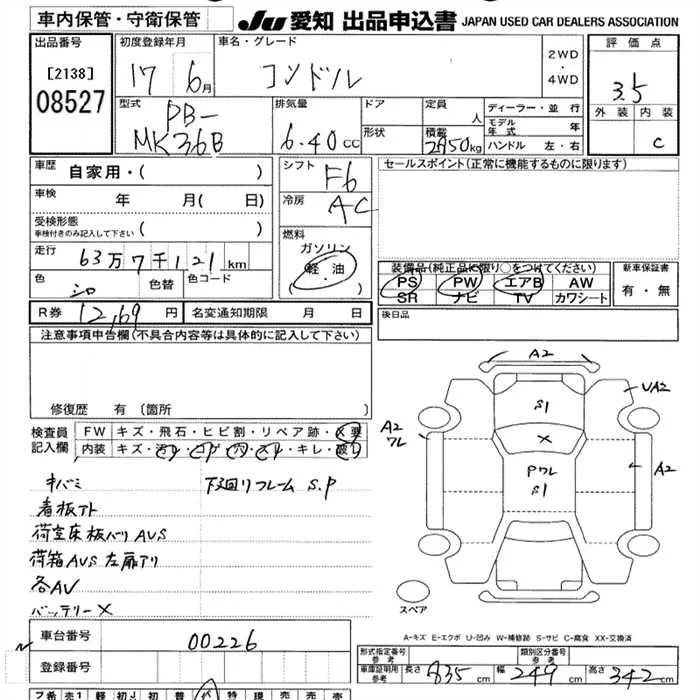 車内保管・守衛保管
JU 愛知 出品申込書 JAPAN USED CAR DEALERS ASSOCIATION
出品番号
[2138]
08527
初度登録年月
17年 6月
車名・グレード
コンドル
2WD
・
4WD
評価点
3.5
外装 内装
C
型式
PB-
MK36B
排気量
6.40cc
ドア
形状
定員
人
積載
2950kg
ディーラー・並行
モデル年式 年
ハンドル 左・右
車歴 自家用・(
車検 年 月( 日)
受検形態
車検付きのみ記入して下さい (
走行 63万7千121km
色 シロ 色替 色コード
シフト F6
冷房 AC
燃料
ガソリン
軽油
セールスポイント(正常に機能するものに限ります)
装備品(純正品に限り○をつけてください)
PS PW エアB AW
SR ナビ TV カワシート
新車保証書
有・無
後日品
R券 12,69 円 名変通知期限 月 日
注意事項申告欄(不具合内容等は具体的に記入して下さい)
修復歴 有 〔箇所 〕
検査員
記入欄
FW キズ・飛石・ヒビ割・リペア跡・X要
内装 キズ・汚レ・コゲ・穴・スレ・キレ・破レ
キバミ 下回リフレーム S.P
看板アト
荷室床板バリ AUS
荷箱AUS 左扉アリ
各AV
バッテリーX
A2
S1
UA2
X
A2
ワレ
Pワレ
S1
A2
スペア
A-キズ E-エクボ U-凹み W-補修跡 S-サビ C-腐食 XX-交換済
車台番号 00226
登録番号
形式指定番号
参考
類別区分番号
参考
車庫証明用
参考
長さ 835cm 幅 249cm 高さ 342cm